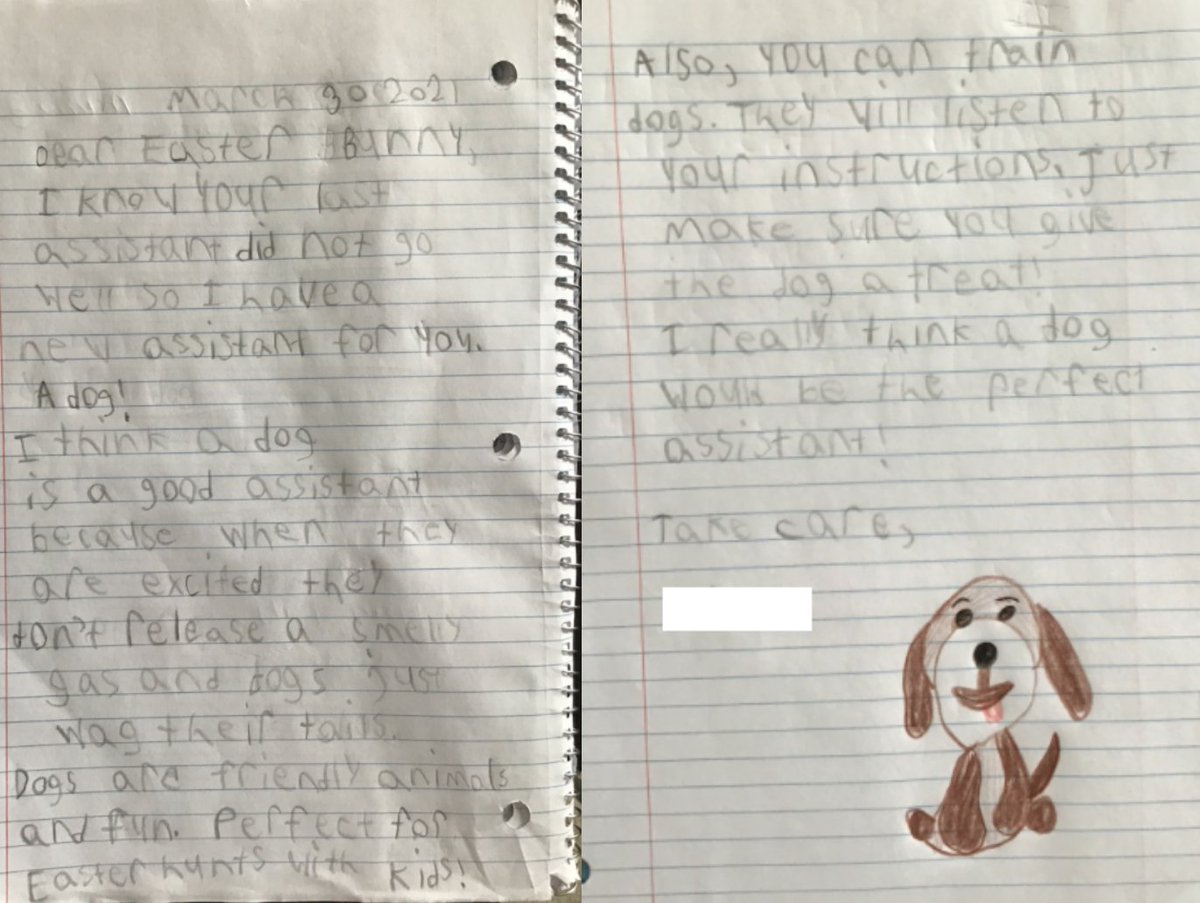 March 30 2021
Dear Easter Bunny,
I know your last
assistant did not go
well so I have a
new assistant for you.
A dog!
I think a dog
is a good assistant
because when they
are excited they
don't release a smelly
gas and dogs just
wag their tails.
Dogs are friendly animals
and fun. Perfect for
Easter hunts with kids!
Also, you can train
dogs. They will listen to
your instructions. Just
make sure you give
the dog a treat!
I really think a dog
would be the perfect
assistant!
Take care,